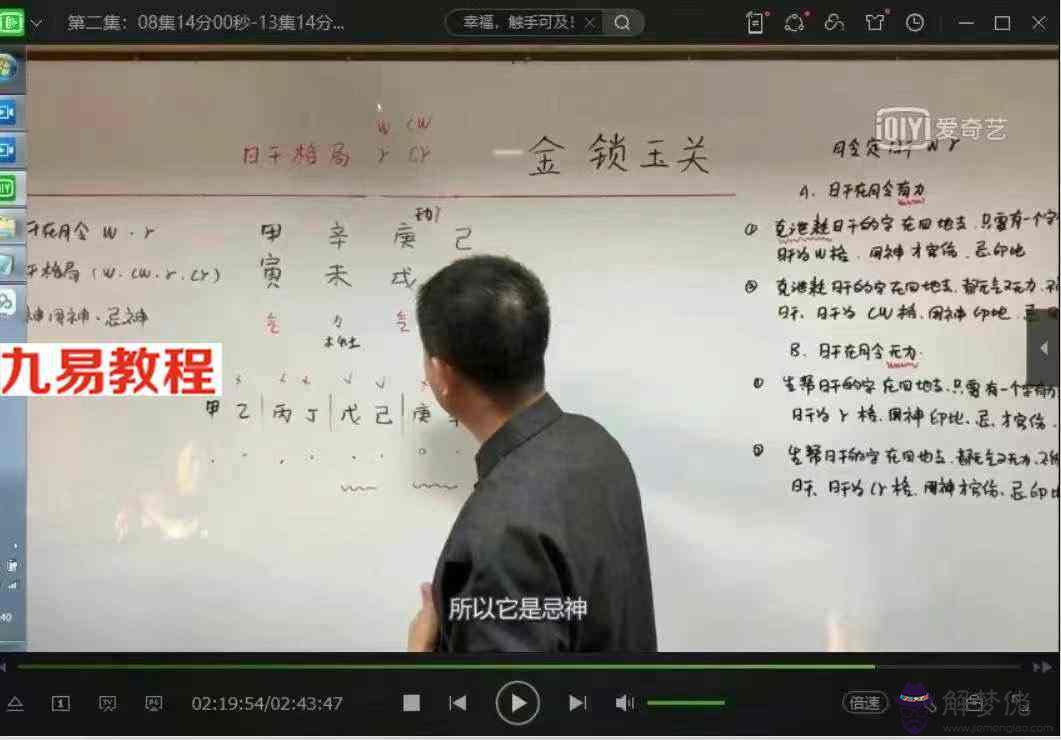 第二集：08集14分00秒-13集14分...
幸福，触手可及！
iQIYI 爱奇艺
日干格局
W CW
r Cr
金锁玉关
A. 日干在月令有力
① 克泄耗日干的字在四地支，只要有一个字
日干为W格，用神才官伤，忌印比
② 克泄耗日干的字在四地支，都无气又无力，
日干为CW格，用神印比，忌
B. 日干在月令无力
① 生帮日干的字在四地支，只要有一个字有力
日干为r格，用神印比，忌，才官伤，
② 生帮日干的字在四地支，都无气又无力，
日干为Cr格，用神才官伤，忌印比
干在月令 W · r
干格局（W. CW. r. Cr）
神用神、忌神
甲 辛 庚 己
寅 未 戌
九易教程
甲乙 丙丁 戊己 庚
所以它是忌神
02:19:54/02:43:47
倍速
解梦佬
www.jiemenglao.com